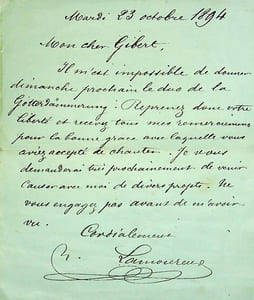 Mardi 23 octobre 1894
Mon cher Gibert,
Il m'est impossible de donner
dimanche prochain le duo de la
Gotterdämmerung : Reprenez donc votre
liberté et recevez tous mes remerciements
pour la bonne grâce avec laquelle vous
aviez accepté de chanter. Je vous
demanderai très prochainement de venir
causer avec moi de divers projets. Ne
vous engagez pas avant de m'avoir
vu.
Cordialement
Lamoureux